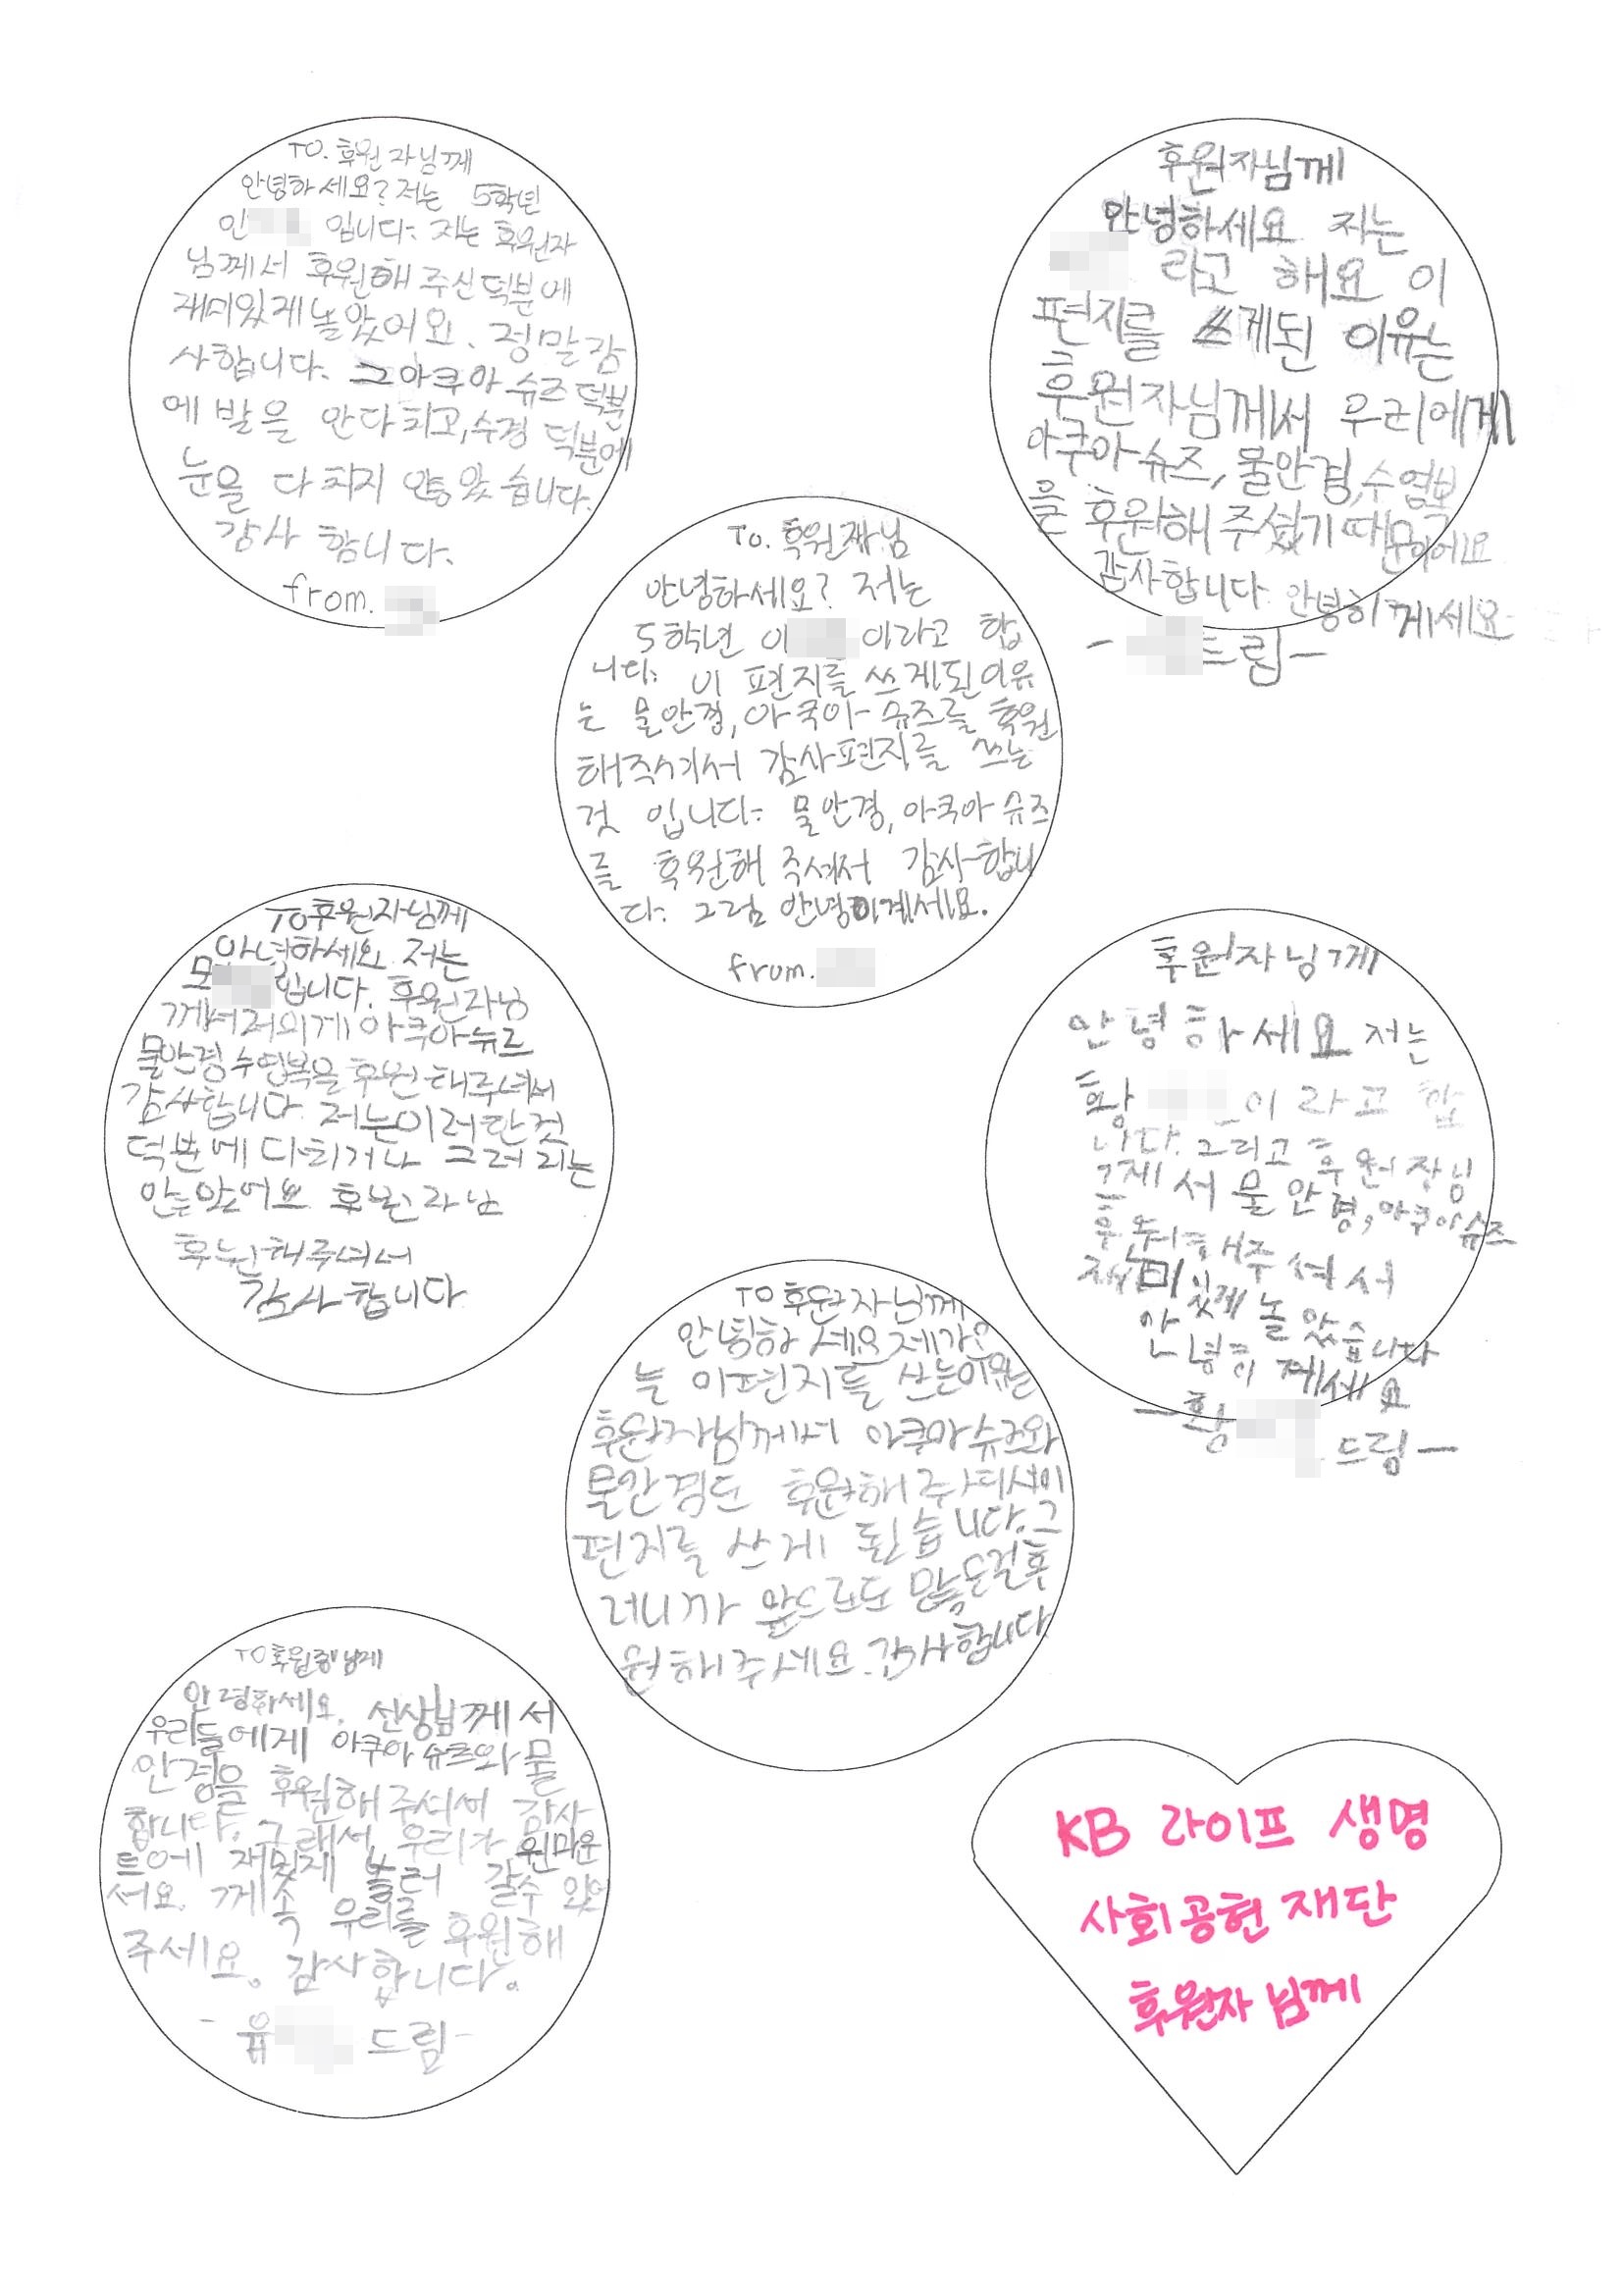 TO. 후원 자님께
안녕하세요? 저는 5학년
인 입니다. 저는 후원자
님께서 후원해 주신 덕분에
재미있게 놀았어요. 정말 감
사합니다. 그 아쿠아 슈즈 덕분
에 발을 안다치고, 수경 덕분에
눈을 다치지 않았습니다.
감사 합니다.
from.
후원자님께
안녕하세요 저는
라고 해요 이
편지를 쓰게된 이유는
후원자님께서 우리에게
아쿠아슈즈, 물안경, 수영복
을 후원해 주셨기 때문이에요
감사합니다 안녕히 계세요
- 드림-
To. 후원자님
안녕하세요? 저는
5학년 이 이라고 합
니다. 이 편지를 쓰게된이유
는 물안경, 아쿠아 슈즈를 후원
해주셔서 감사편지를 쓰는
것 입니다. 물안경, 아쿠아 슈즈
를 후원해 주셔서 감사합니
다. 그럼 안녕이계세요.
from.
TO후원자님께
안녕하세요 저는
모 입니다. 후원자님
께서 저의게 아쿠아슈즈
물안경 수영복을 후원해주셔서
감사합니다. 저는이러한것
덕분에 다치거나 그러지는
안았어요 후원자님
후원해주셔서
감사합니다
후원자님께
안녕하세요 저는
황 이라고 합
니다. 그리고 후원자님
께서 물안경, 아쿠아슈즈
후원해주셔서
재미있게 놀았습니다
안녕히 계세요
-황 드림-
TO후원자님께
안녕하세요 제가
이편지를 쓰는이유는
후원자님께서 아쿠아슈즈와
물안경도 후원해주셔서이
편지를 쓰게 된습니다. 그
러니까 앞으로도 많은걸후
원해주세요. 감사합니다
TO후원 님께
안녕하세요. 선생님께서
우리들에게 아쿠아슈즈와 물
안경을 후원해주셔서 감사
합니다. 그래서 우리가 원마운
트에 재밌게 놀러 갈수 있어
서요. 께속 우리를 후원해
주세요. 감사합니다.
- 유 드림-
KB 라이프 생명
사회공헌 재단
후원자 님께